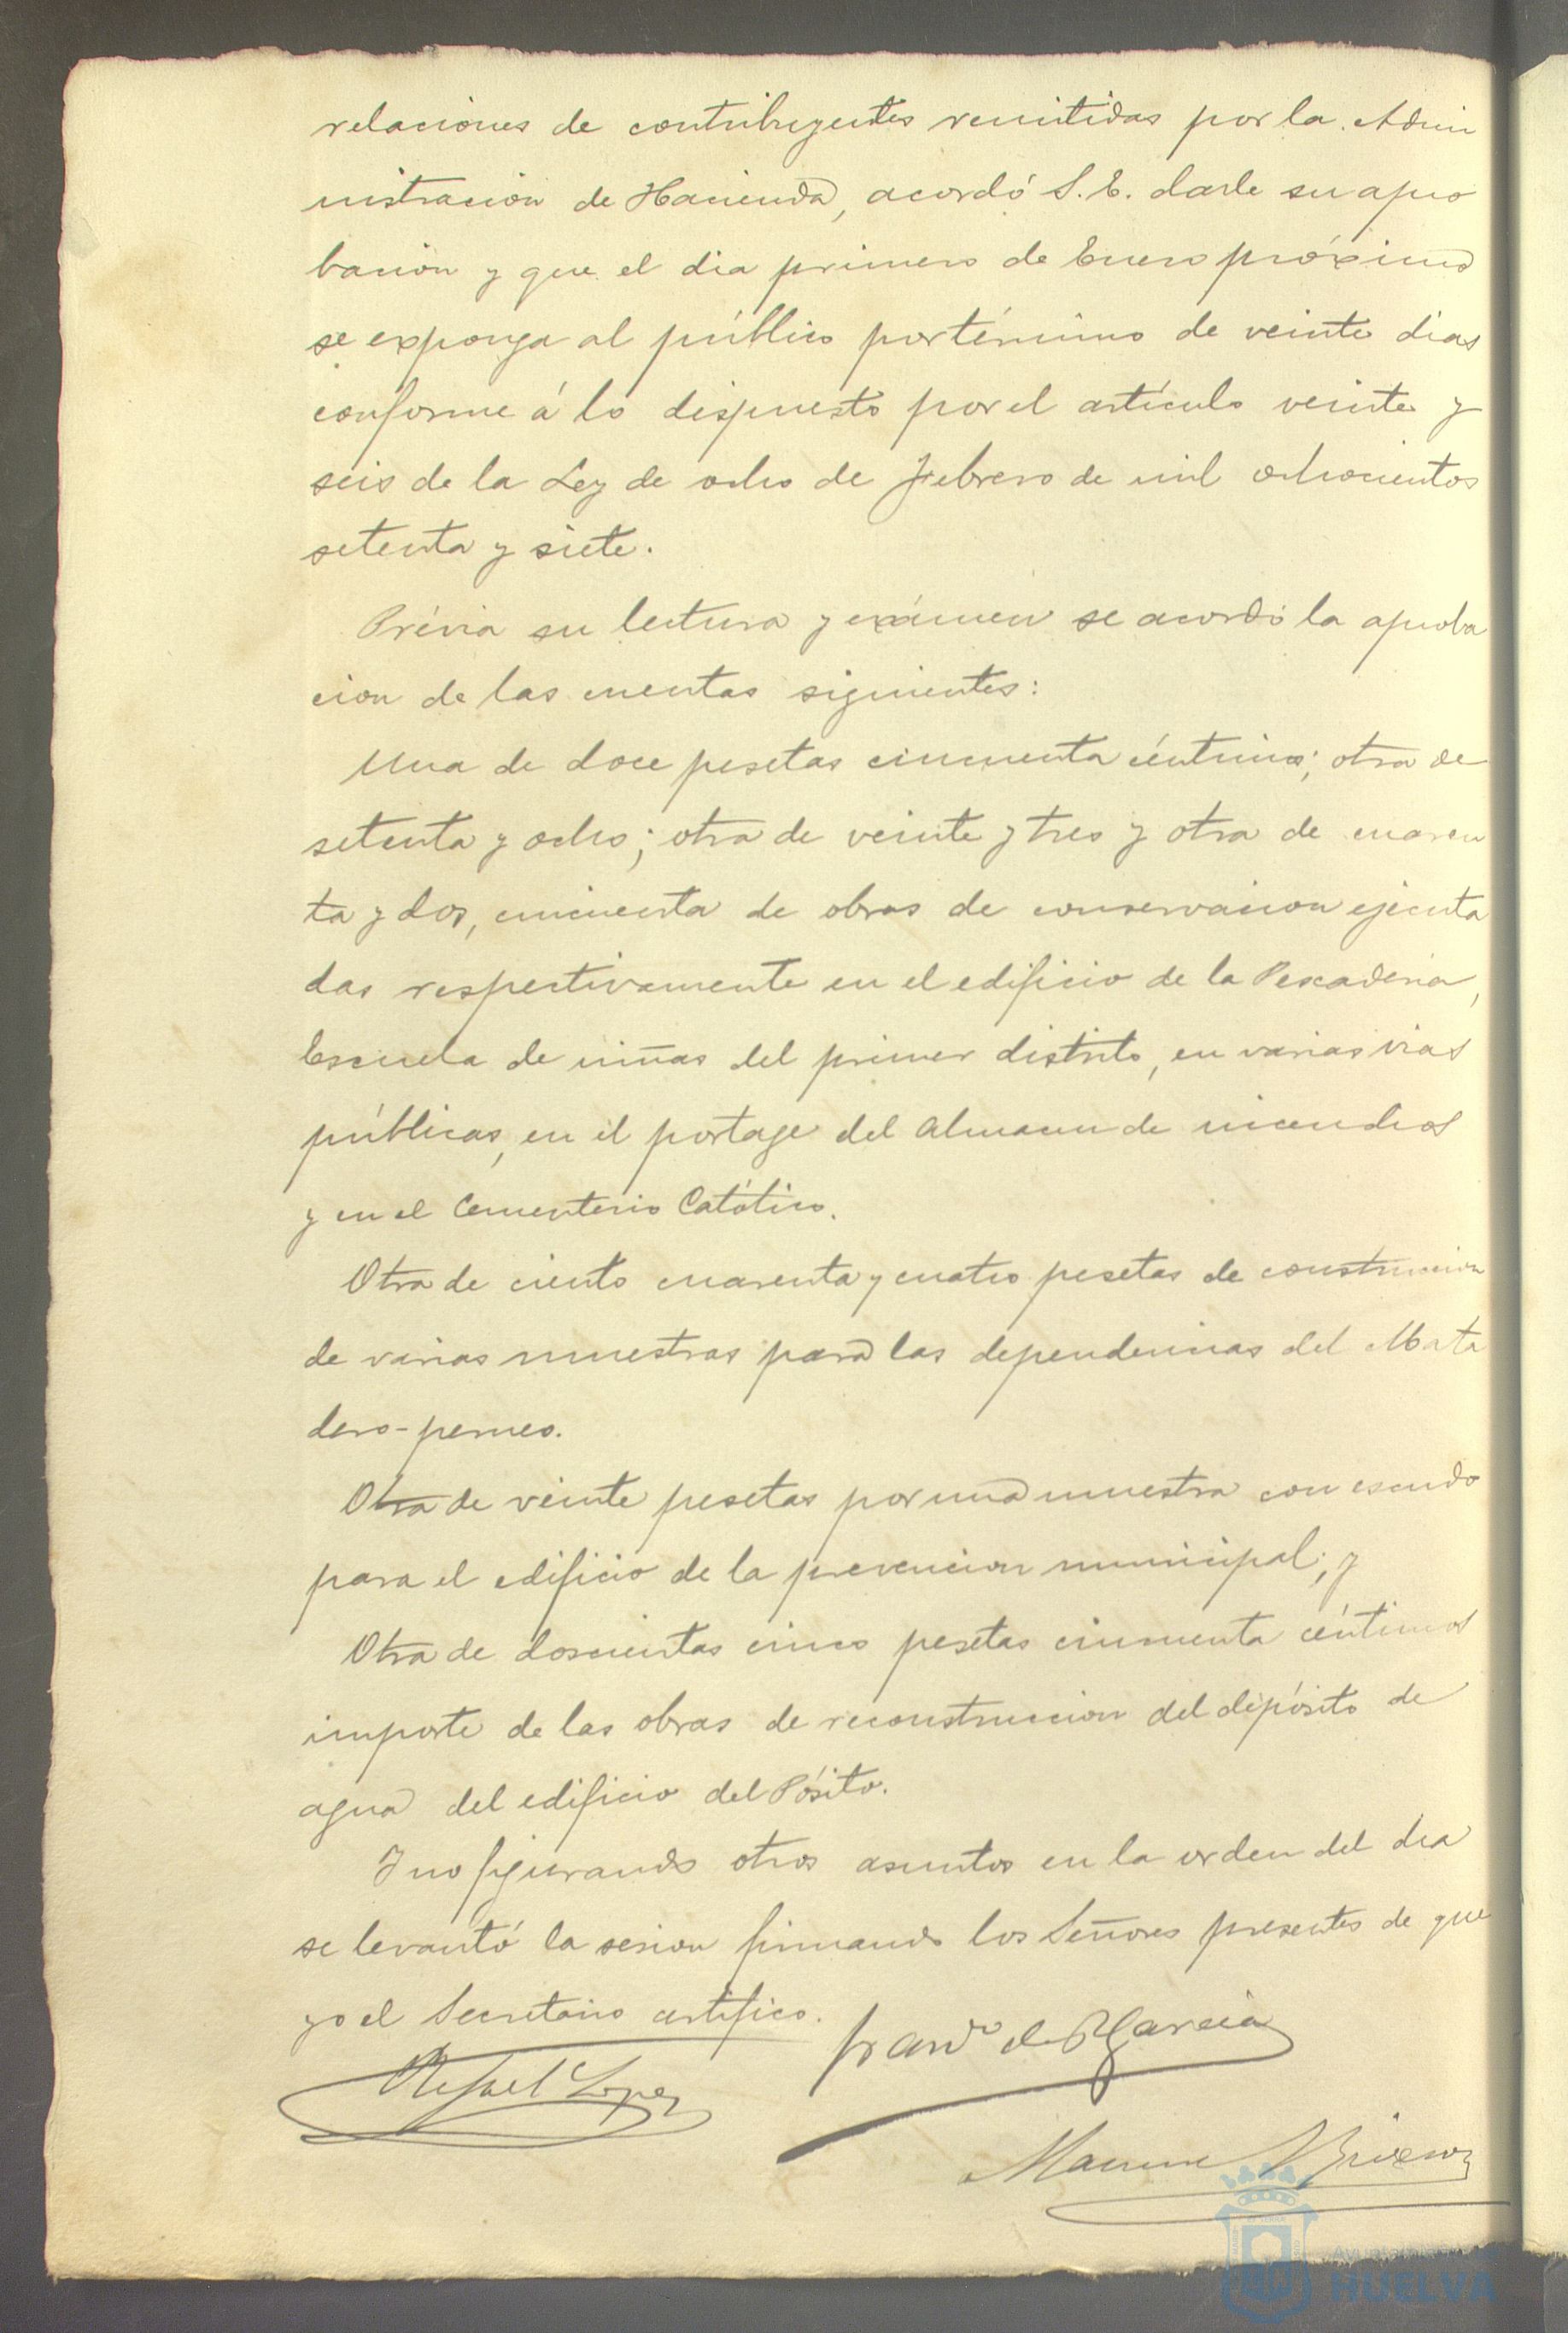 relaciones de contribuyentes remitidas por la Admi
nistracion de Hacienda, acordó S. E. darle su apro
bacion y que el dia primero de Enero próximo
se exponga al público por término de veinte dias
conforme á lo dispuesto por el artículo veinte y
seis de la Ley de ocho de Febrero de mil ochocientos
setenta y siete.
Prévia su lectura y exámen se acordó la aproba
cion de las cuentas siguientes:
Una de doce pesetas cincuenta céntimos; otra de
setenta y ocho; otra de veinte y tres y otra de cuaren
ta y dos, cincuenta de obras de conservacion ejecuta
das respectivamente en el edificio de la Pescaderia,
Escuela de niñas del primer distrito, en varias vias
públicas, en el portage del almacen de incendios
y en el Cementerio Católico.
Otra de ciento cuarenta y cuatro pesetas de construccion
de varias muestras para las dependencias del Mata
dero-perneo.
Otra de veinte pesetas por una muestra con escudo
para el edificio de la prevencion municipal; y
Otra de doscientas cinco pesetas cincuenta céntimos
importe de las obras de reconstruccion del depósito de
agua del edificio del Pósito.
Y no figurando otros asuntos en la orden del dia
se levantó la sesion firmando los Señores presentes de que
yo el Secretario certifico.
Franco de P Garcia
Rafael Lopez
Ayuntamiento de
HUELVA